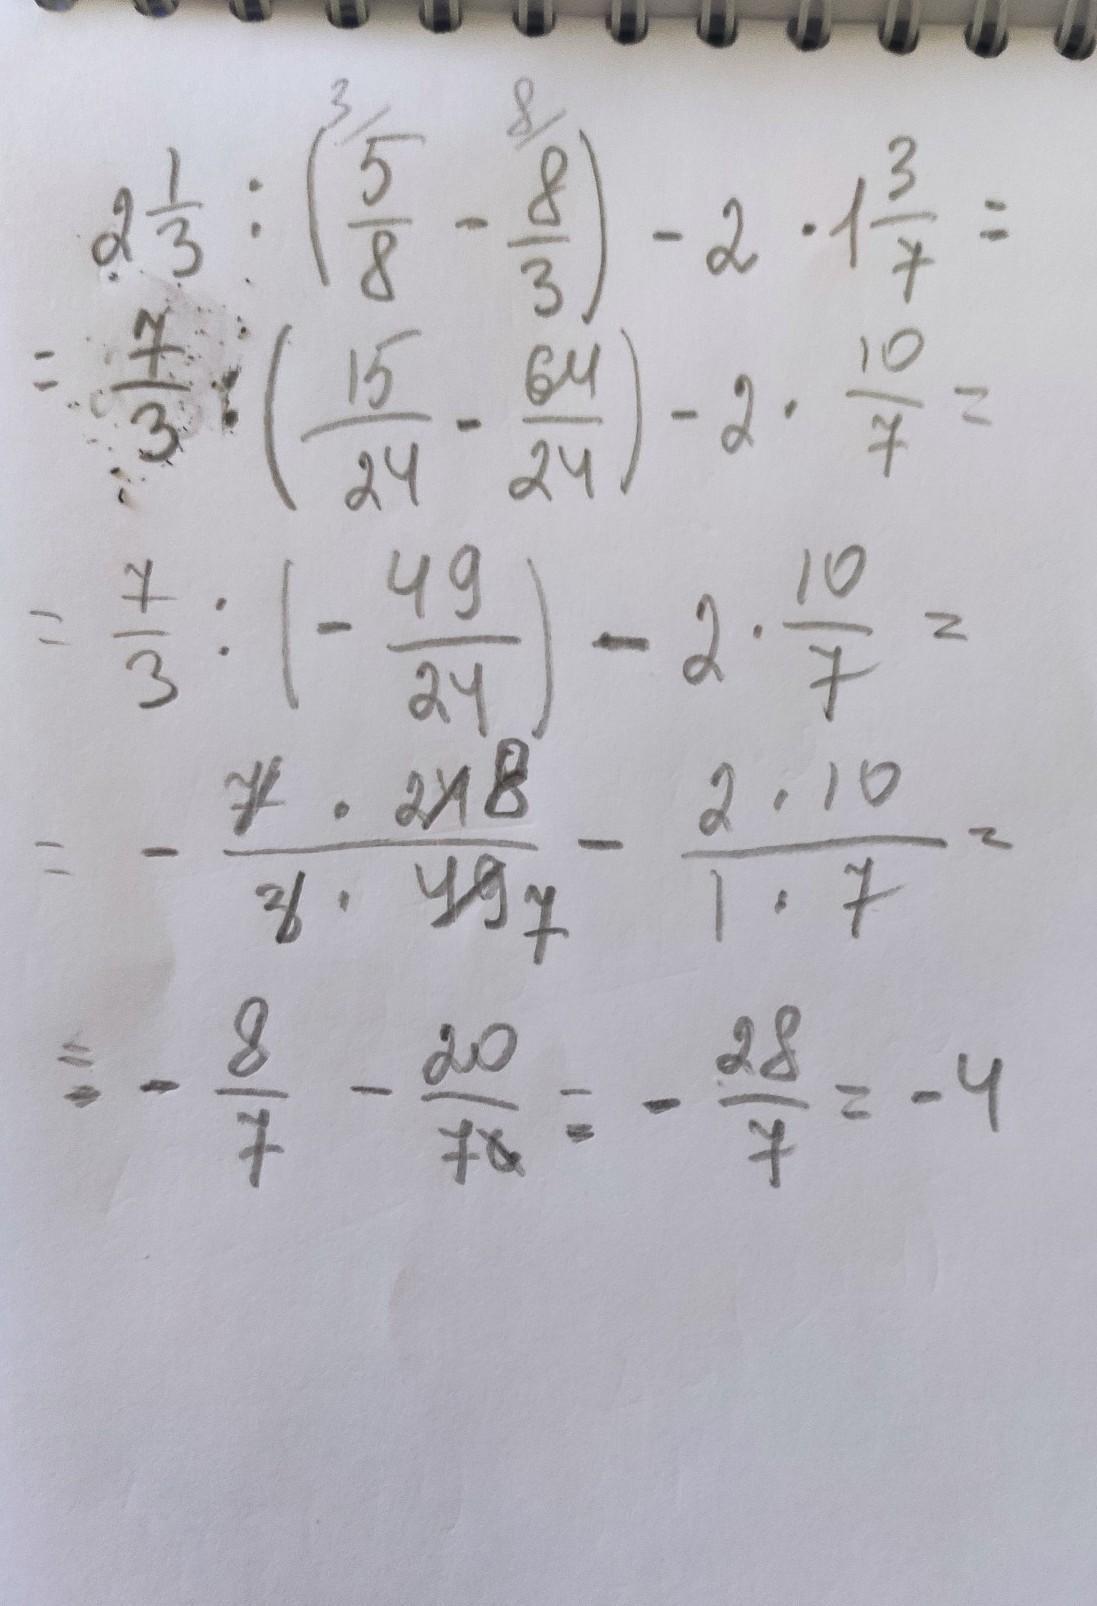 2 1/3 : (5/8 - 8/3) - 2 · 1 3/7 =
= 7/3 : (15/24 - 64/24) - 2 · 10/7 =
= 7/3 : (- 49/24) - 2 · 10/7 =
= - 7 · 24 8 / 3 · 49 7 - 2 · 10 / 1 · 7 =
= - 8/7 - 20/7 = - 28/7 = -4